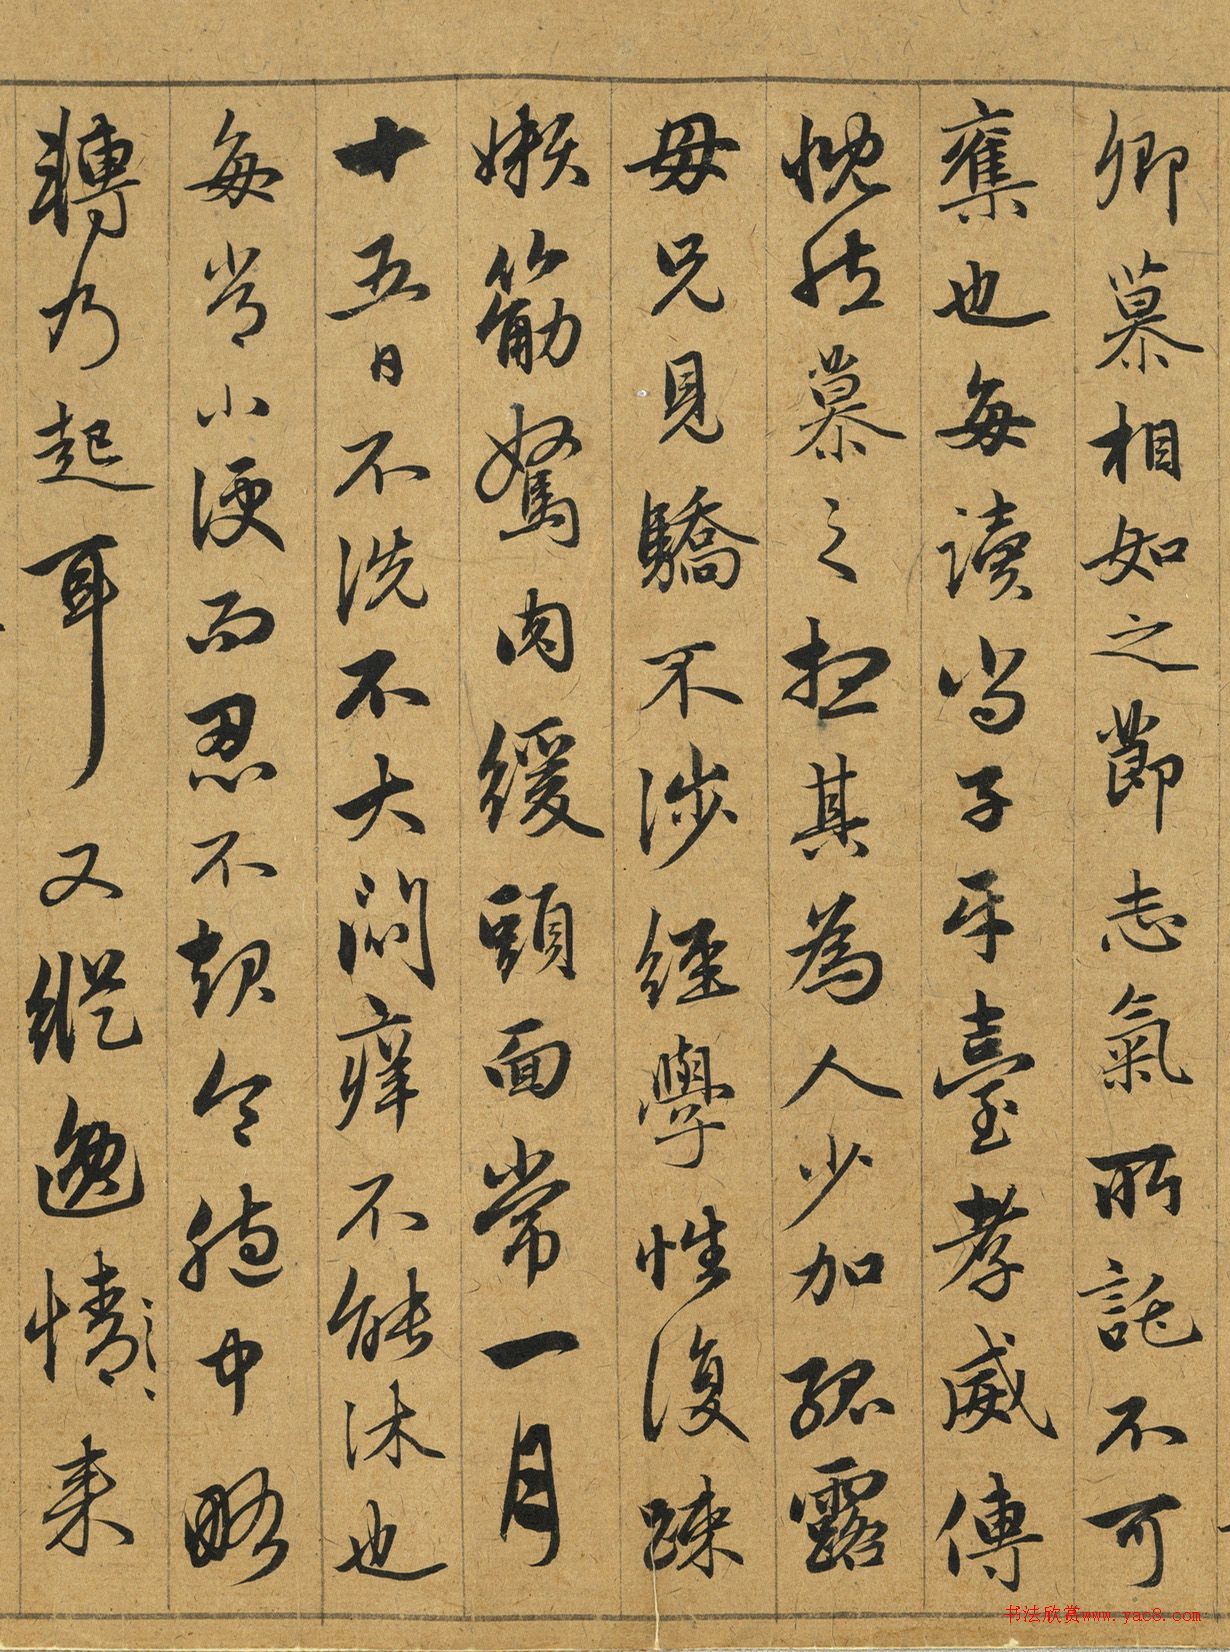 卿慕相如之節志氣所託不可
奪也每讀尚子平臺孝威傳
慨然慕之想其為人少加孤露
母兄見驕不涉經學性復踈
嬾筋駑肉緩頭面常一月
十五日不洗不大悶痒不能沐也
每常小便而忍不起令胞中略
轉乃起耳又縱逸情來
书法欣赏www.yac8.com